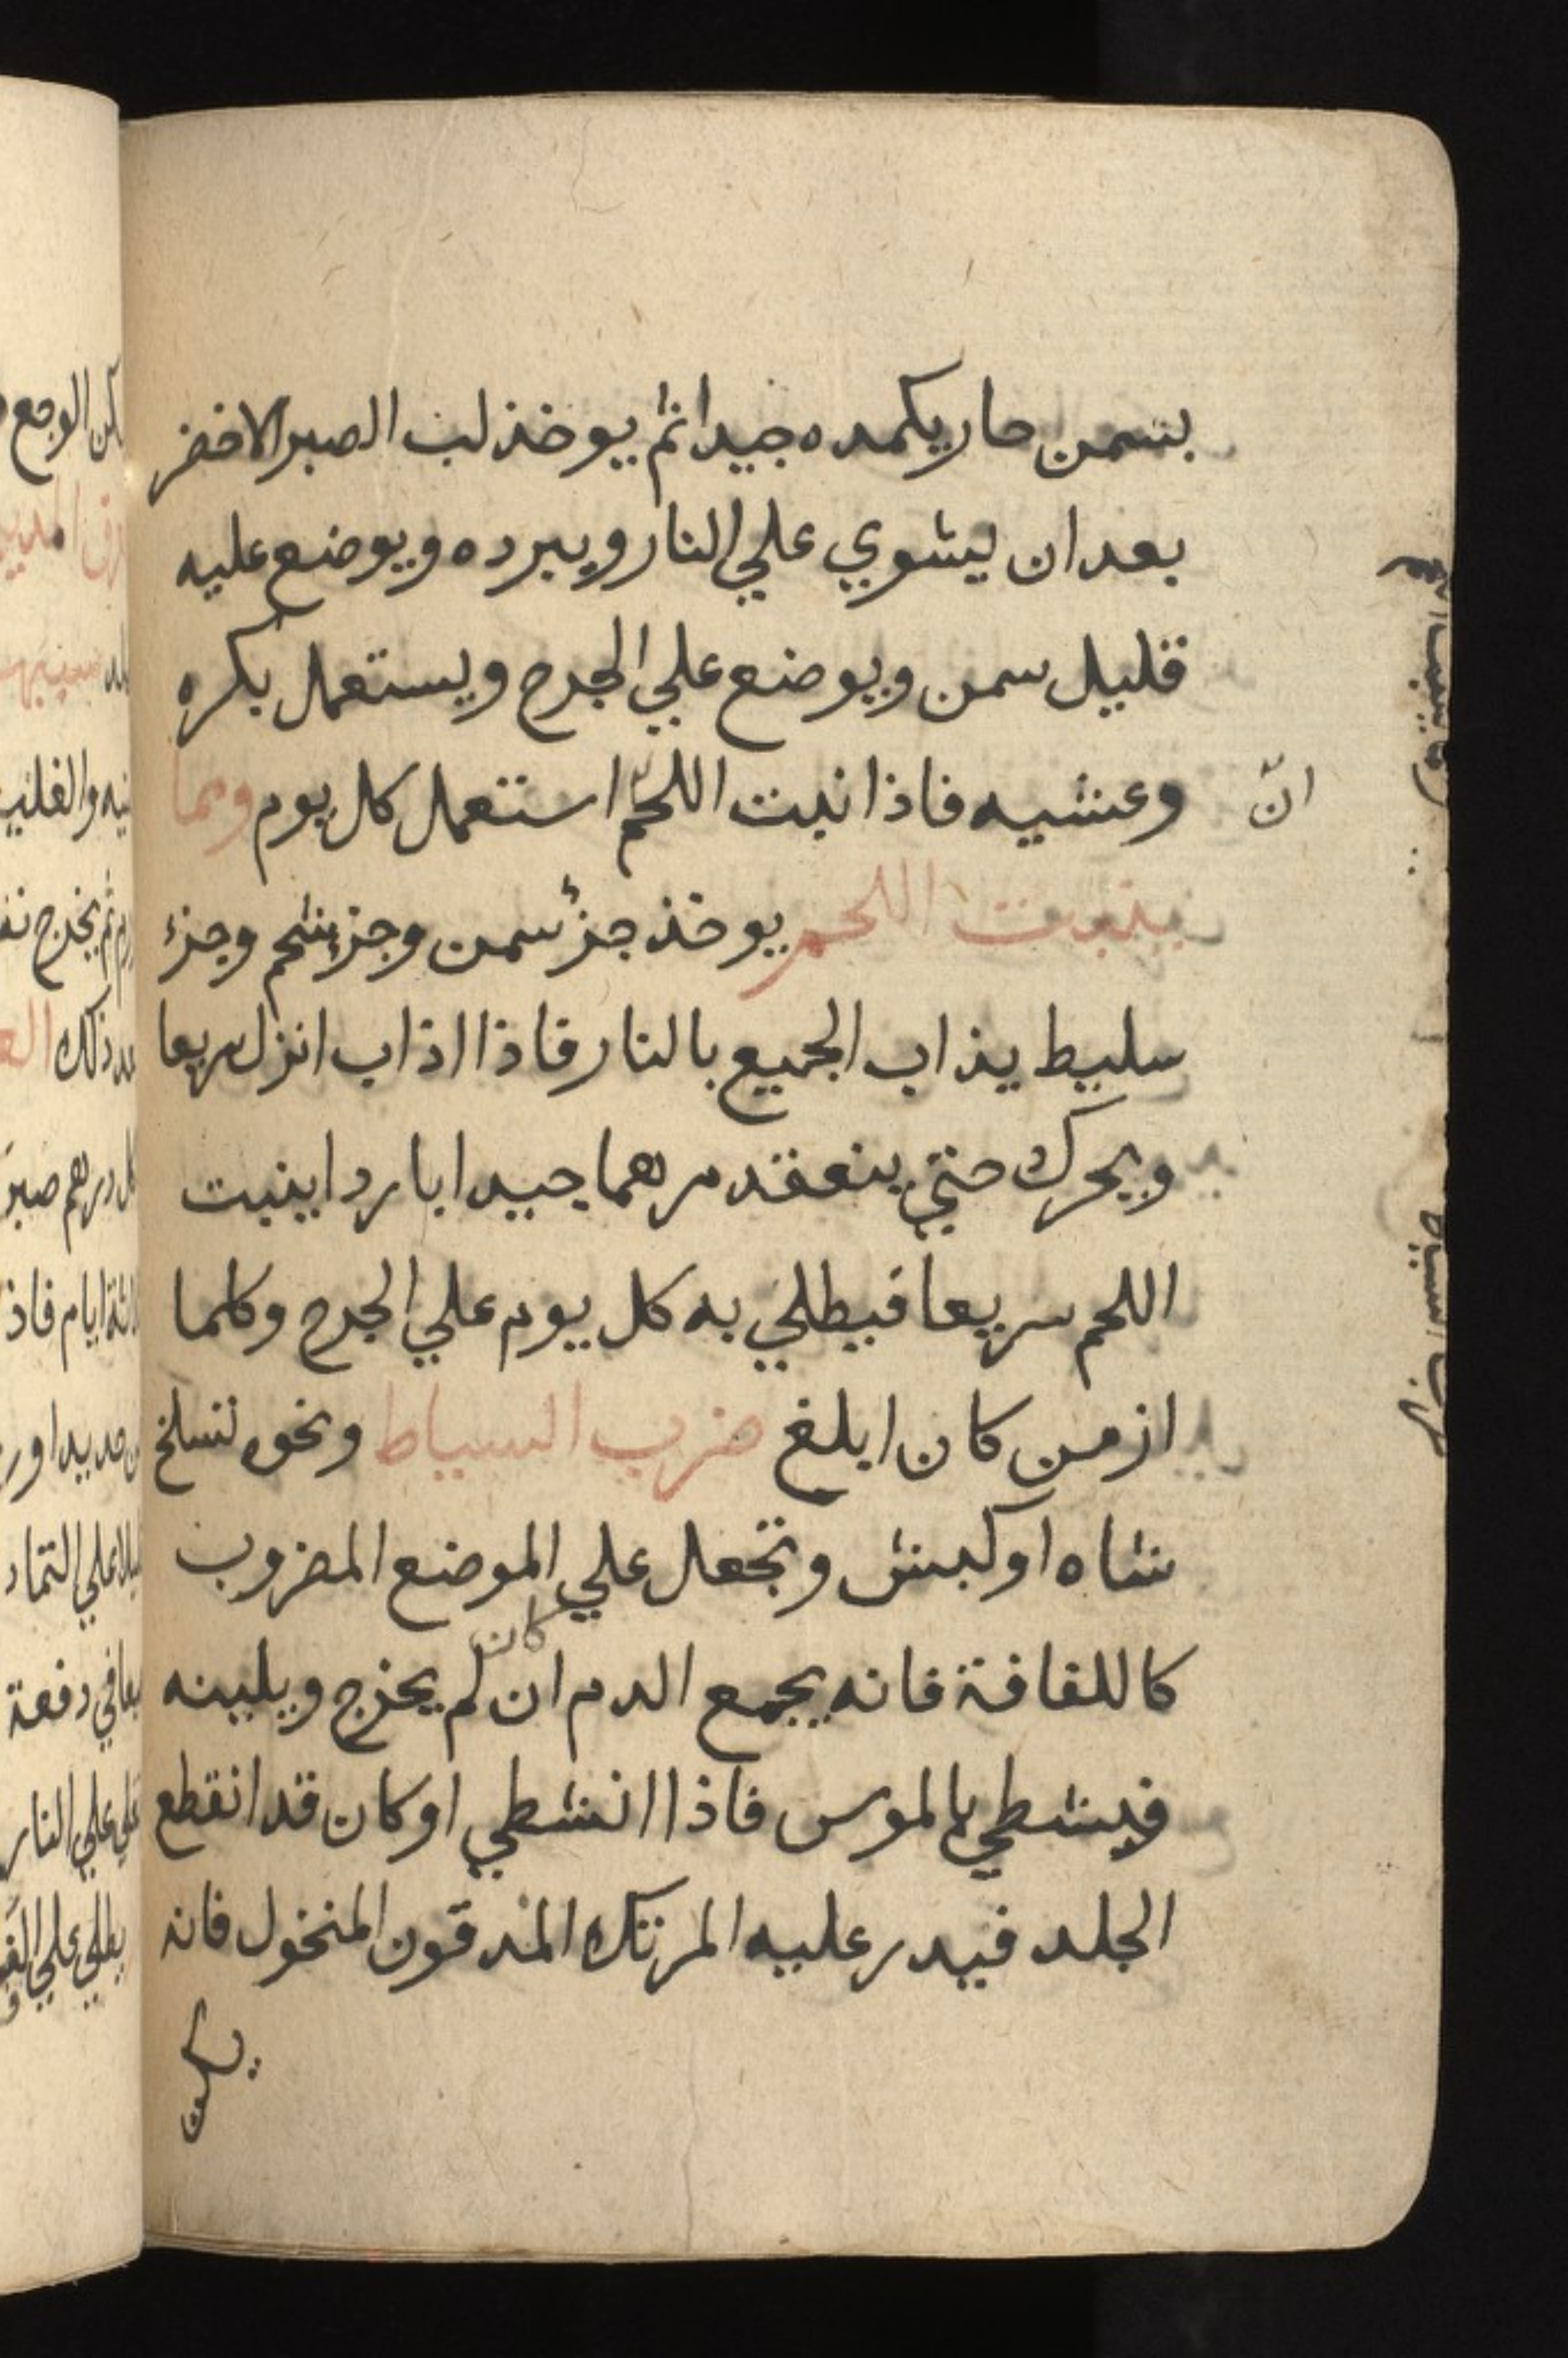 بسمن حار يكمده جيدا ثم يوخذ لب الصبر الاخضر
بعد ان يشوي علي النار ويبرده ويوضع عليه
قليل سمن ويوضع علي الجرح ويستعمل بكره
وعشيه فاذا نبت اللحم استعمل كل يوم ومما
ان
ينبت اللحم يوخذ جزؤ سمن وجزء شحم وجزء
سليط يذاب الجميع بالنار فاذا اذاب انزل سريعا
ويحرك حتي ينعقد مرهما جيدا باردا ينبت
اللحم سريعا فيطلي به كل يوم علي الجرح وكلما
ازمن كان ابلغ ضرب السياط ونحوه تسلخ
شاه او كبش وتجعل علي الموضع المضروب
كان
كاللفافة فانه يجمع الدم ان لم يخرج ويلينه
فيشطي بالموس فاذا انشطي او كان قد انقطع
الجلد فيدر عليه المرتك المدقون المنخول فانه
يسكن
ضرب السياط